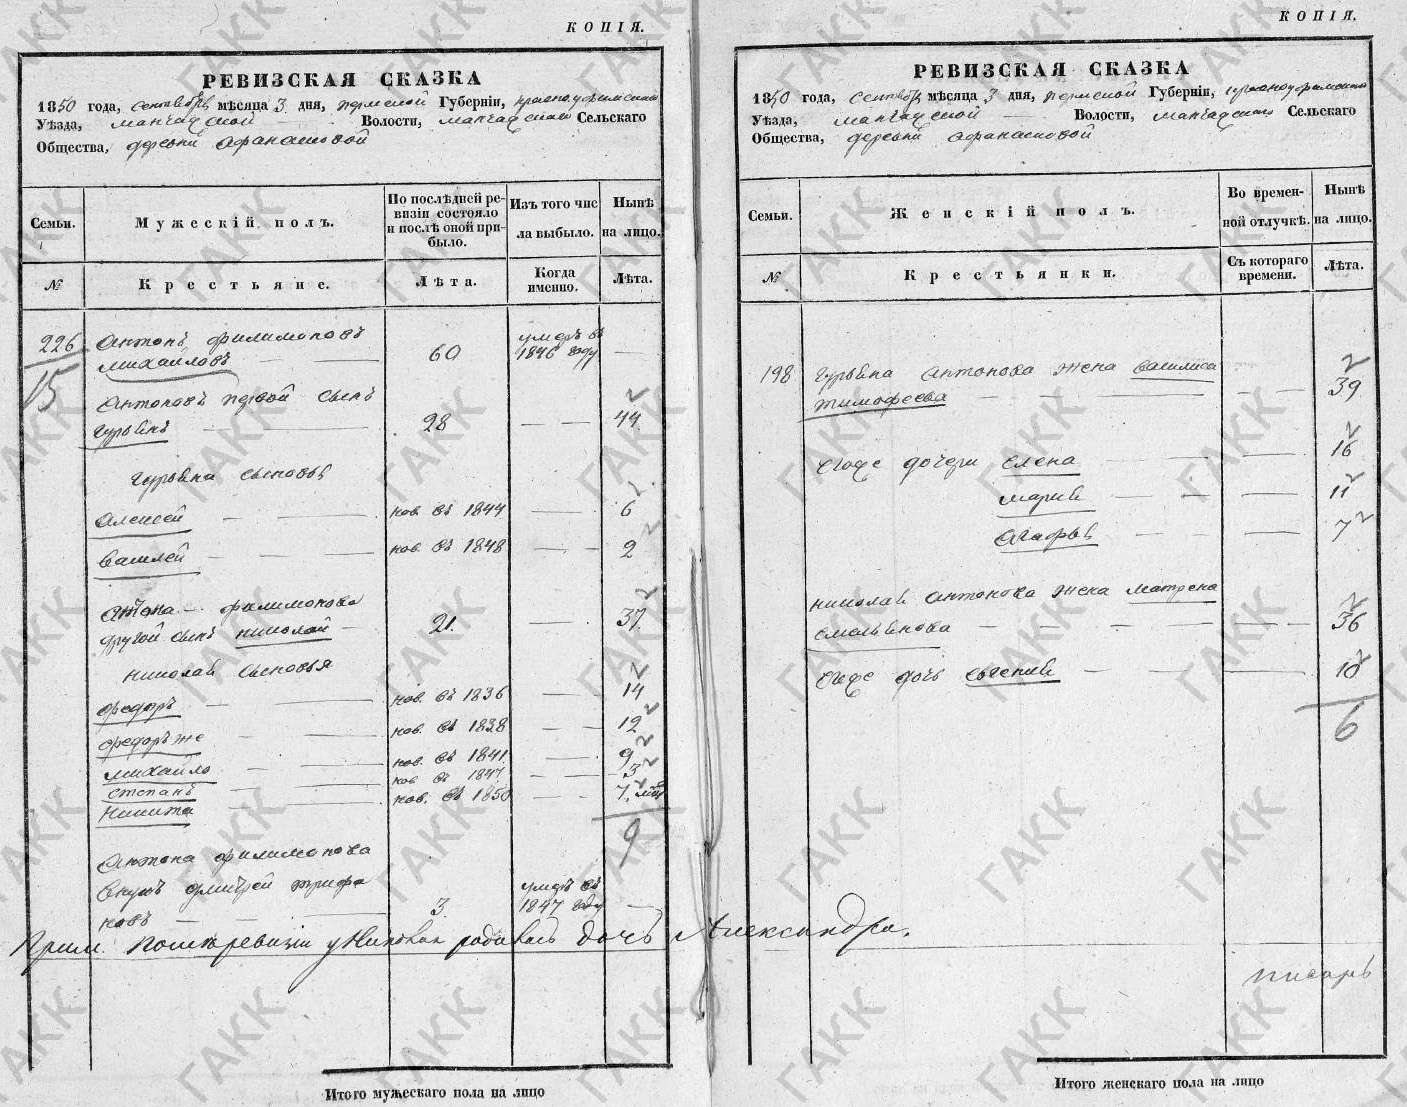 КОПІЯ.
РЕВИЗСКАЯ СКАЗКА
1850 года, сентября мѣсяца 3 дня, пермской Губерніи, красноуфимскаго
Уѣзда, манчажской Волости, манчажскаго Сельскаго
Общества, деревни Афанасковой
Семьи.
Мужескій полъ.
По послѣдней ре-
визіи состояло
и послѣ оной при-
было.
Изъ того чис
ла выбыло.
Нынѣ
на лицо.
№
Крестьяне.
Лѣта.
Когда
именно.
Лѣта.
226
15
Антонъ филимоновъ
михайловъ 60 умеръ въ 1846 году
Антоновъ первой сынъ
Гурьянъ 28 44
Гурьяна сыновья
Алексей нов. въ 1844 6
Василей нов. въ 1848 2
Антона филимонова
другой сынъ николай 21. 37
николая сыновья
федоръ нов. въ 1836 14
федоръ же нов. въ 1838 12
михайло нов. въ 1841 9
степанъ нов. въ 1847 3
Никита нов. въ 1850 7. мѣс
9
Антона филимонова
внукъ дмитрей трифо
новъ 3. умеръ въ 1847 году
Прим. Послѣ ревизіи у Николая родилась дочь Александра.
Итого мужескаго пола на лицо
КОПІЯ.
РЕВИЗСКАЯ СКАЗКА
1850 года, сентября мѣсяца 3 дня, пермской Губерніи, красноуфимскаго
Уѣзда, манчажской Волости, манчажскаго Сельскаго
Общества, деревни Афанасковой
Семьи.
Женскій полъ.
Во времен-
ной отлучкѣ.
Нынѣ
на лицо.
№
Крестьянки.
Съ котораго
времени.
Лѣта.
198 Гурьяна Антонова жена василиса
тимофеева 39
Егоже дочери Елена 16
мария 11
Агафья 7
николая Антонова жена матрена
Емельянова 36
Егоже дочь Евгения 10
6
писарь
Итого женскаго пола на лицо
ГАКК